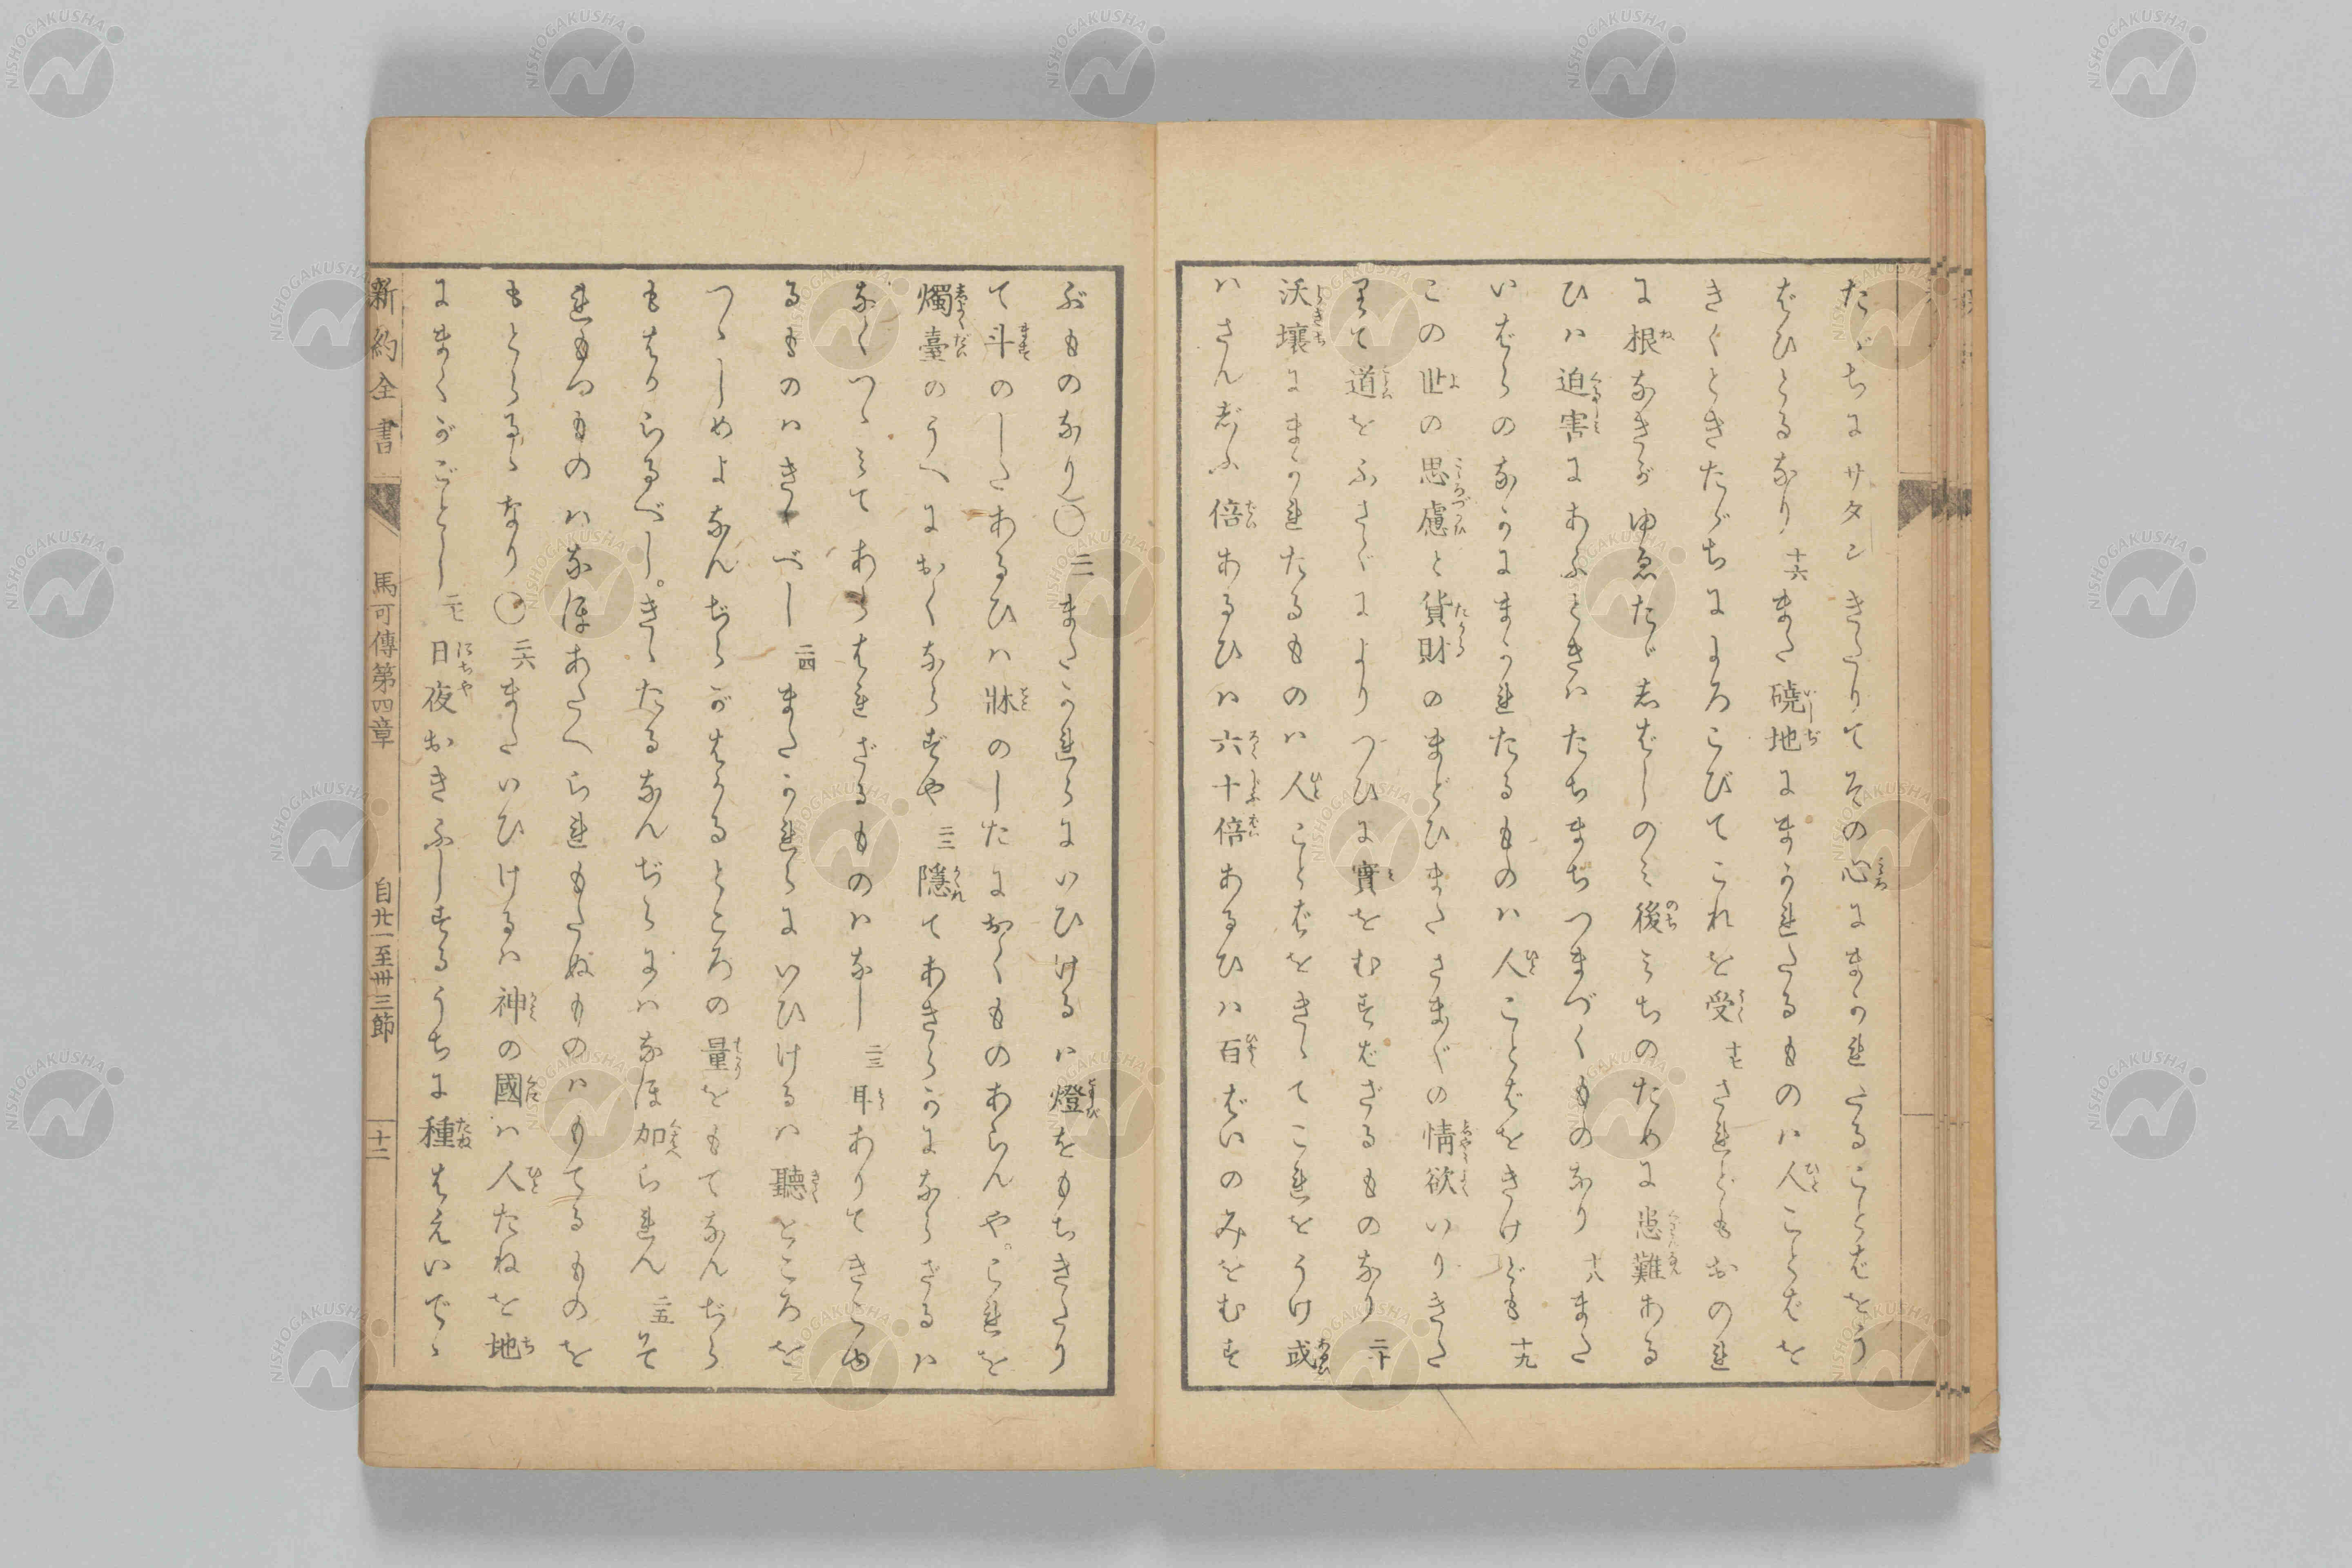 たゞちにサタンきたりてその心にまかれたることばをう
ばひとるなり 十六 また磽地にまかれたるものハ人ことばを
きくときたゞちによろこびてこれを受 十七 されどもおのれ
に根なきがゆゑたゞ志ばしのミ後ミちのために患難ある
ひハ迫害にあふときハたちまちつまづくものなり 十八 また
いばらのなかにまかれたるものハ人ことばをきけども 十九
この世の思慮と貨財のまどひまたさまぐの情欲いりきた
りて道をふさぐによりつひに實をむすばざるものなり 二十
沃壤にまかれたるものハ人ことばをきゝてこれをうけ或
ハさん志ふ倍あるひハ六十倍あるひハ百ばいのみをむす
ぶものなり〇 二一 またかれらにいひけるハ燈をもちきたり
て斗のしたあるひハ牀のしたにおくものあらんや。これを
燭臺のうへにおくならずや 二二 隱てあきらかにならざるハ
なくつゝミてあらはれざるものハなし 二三 耳ありてきこゆ
るものハきくべし 二四 またかれらにいひけるハ聽ところを
つゝしめよなんぢらがはかるところの量をもてなんぢら
もはからるべし。きゝたるなんぢらにハなほ加られん 二五 それ
れもつものハなほあたへられもたぬものハもてるものを
もとらるゝなり〇 二六 またいひけるハ神の國ハ人たねを地
にまくがごとし 二七 日夜おきふしするうちに種はえいでゝ
新約全書 馬可傳第四章 自廿一至卅三節 十二
NISHOGAKUSHA